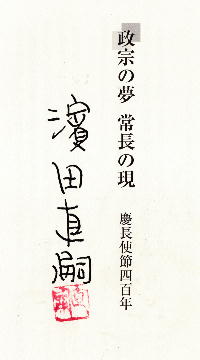 政宗の夢 常長の現
慶長使節四百年
濱田直嗣